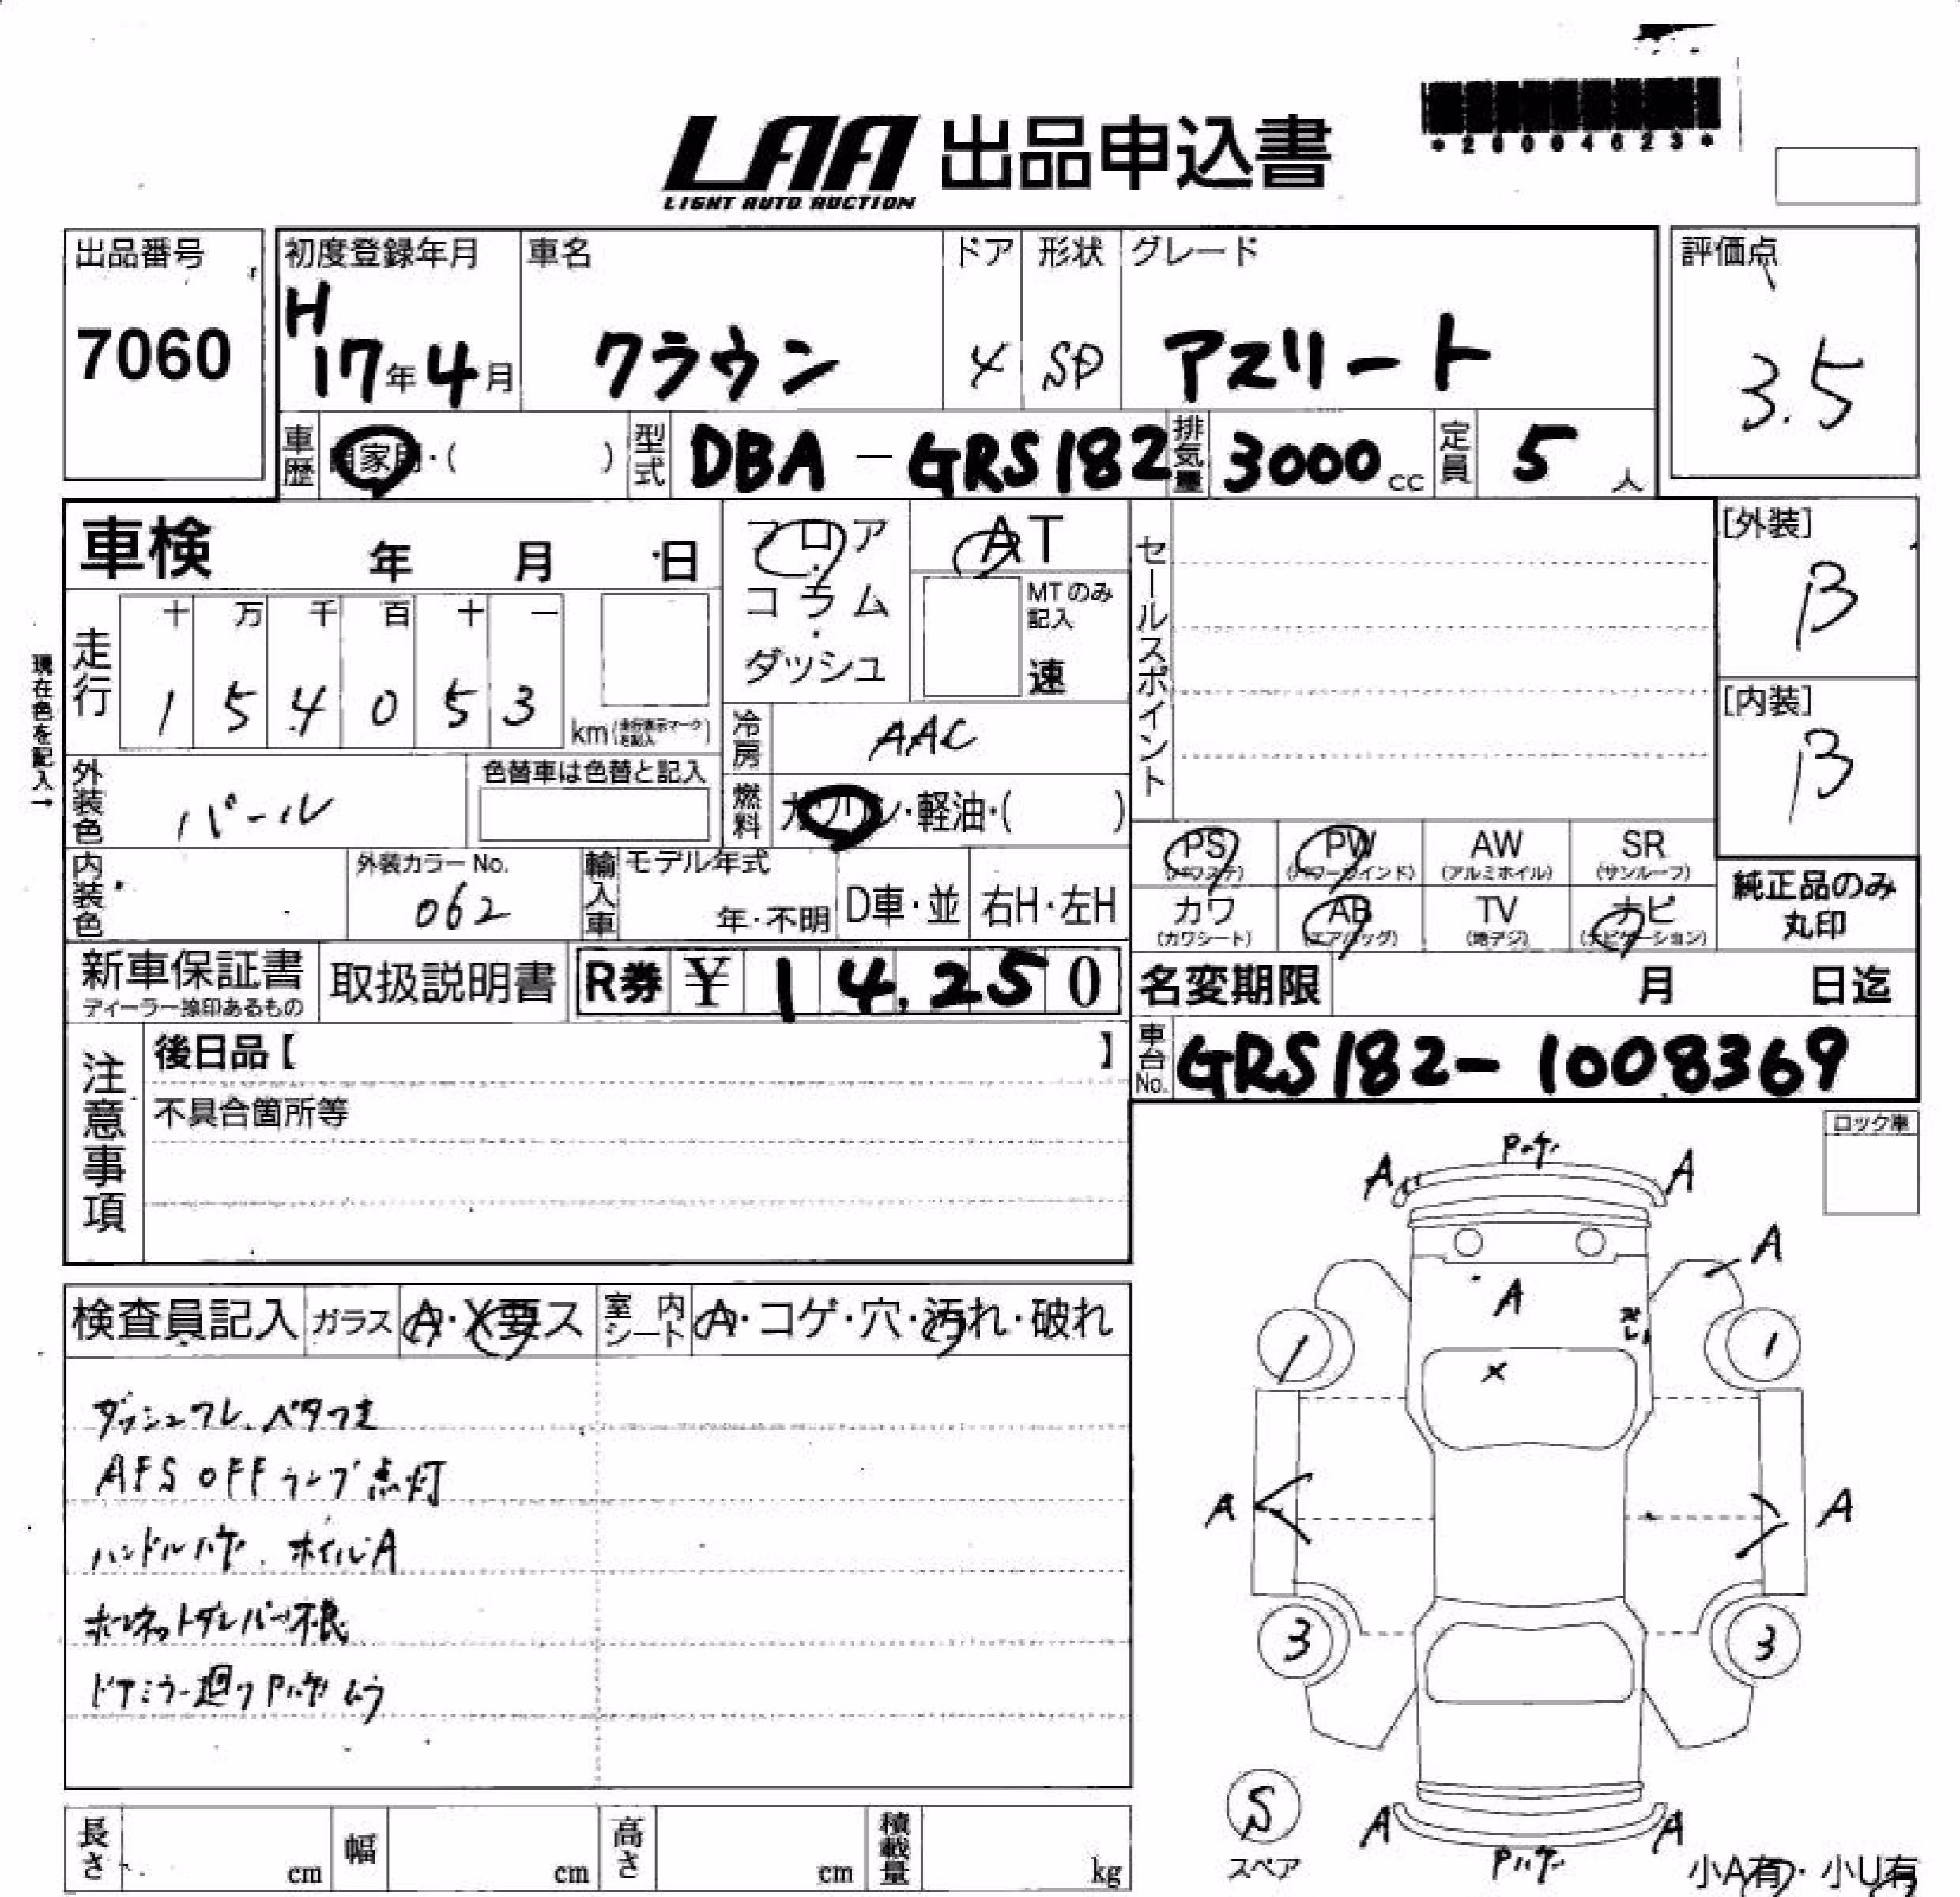 LAA 出品申込書
LIGHT AUTO AUCTION
*26004623*
出品番号
7060
初度登録年月
H17年4月
車名
クラウン
ドア
4
形状
SD
グレード
アスリート
評価点
3.5
車歴
自家用・( )
型式
DBA-GRS182
排気量
3000cc
定員
5人
車検 年 月 日
フロア・コラム・ダッシュ
AT
MTのみ記入
速
セールスポイント
[外装]
B
[内装]
B
現在色を記入→
走行
十 万 千 百 十 一
1 5 4 0 5 3
km(走行表示マークを記入)
冷房
AAC
外装色
パール
色替車は色替と記入
燃料
ガソリン・軽油・( )
PS AW PW SR
(パワステ) (パワーウインド) (アルミホイル) (サンルーフ)
カワ AB TV ナビ
(カワシート) (エアバッグ) (地デジ) (ナビゲーション)
純正品のみ丸印
内装色
外装カラーNo.
062
輸入車
モデル年式
年・不明
D車・並
右H・左H
新車保証書
ディーラー捺印あるもの
取扱説明書
R券 ¥ 14,250
名変期限 月 日迄
車台No.
GRS182-1008369
注意事項
後日品【 】
不具合箇所等
ロック車
検査員記入
ガラス
A・X要ス
室内シート
A・コゲ・穴・汚れ・破れ
ダッシュワレ、ベタつき
AFS OFFランプ点灯
ハンドルハゲ、ホイルA
ボンネットダンパー不良
ドアミラー廻りPハゲ ムラ
Pハゲ
A A
A
A
X
1 1
A A
3 3
S
スペア
A A
Pハゲ
小A有・小U有
長さ cm
幅 cm
高さ cm
積載量 kg